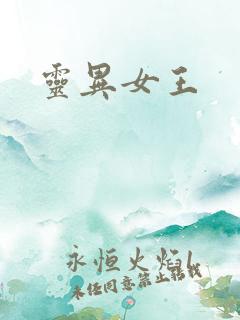 靈異女王
永恒火焰l
未经同意禁止转载